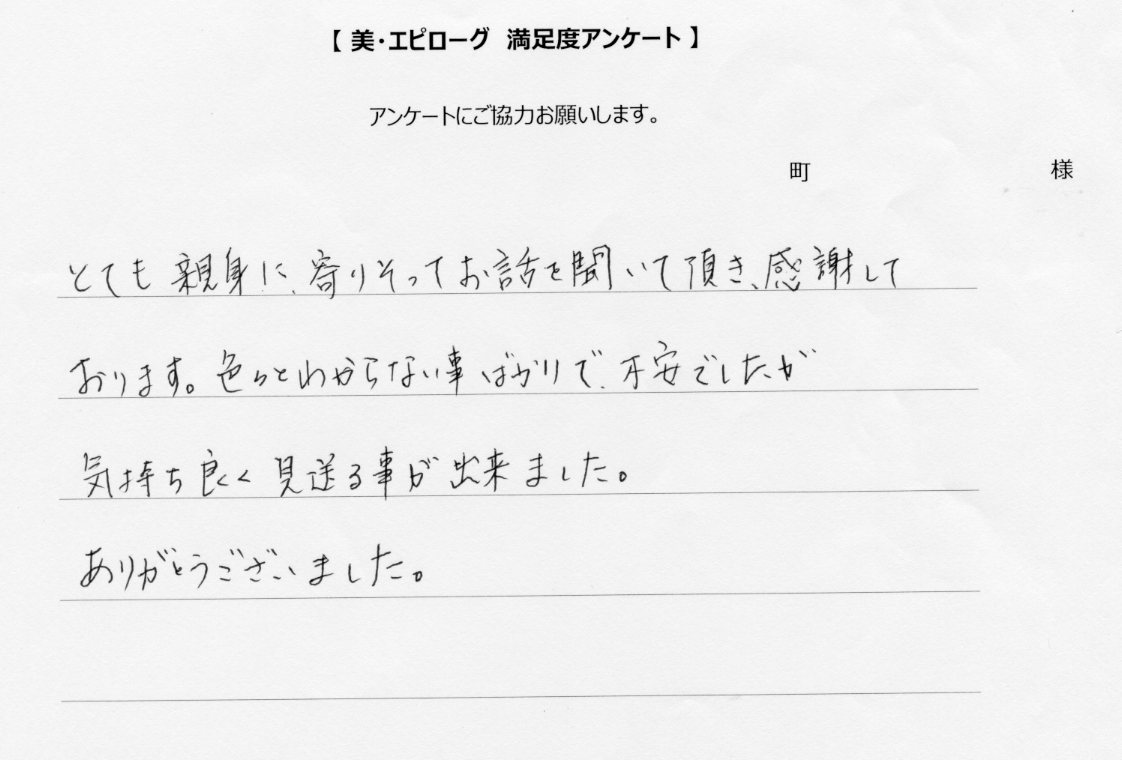 【 美・エピローグ 満足度アンケート 】
アンケートにご協力お願いします。
町 様
とても親身に、寄りそってお話を聞いて頂き、感謝して
おります。色々とわからない事ばかりで、不安でしたが
気持ち良く見送る事が出来ました。
ありがとうございました。